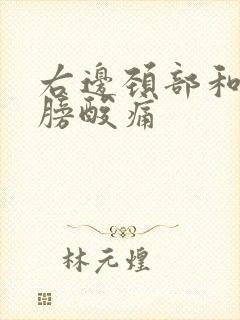 右邊頸部和
膀酸痛
林元煌